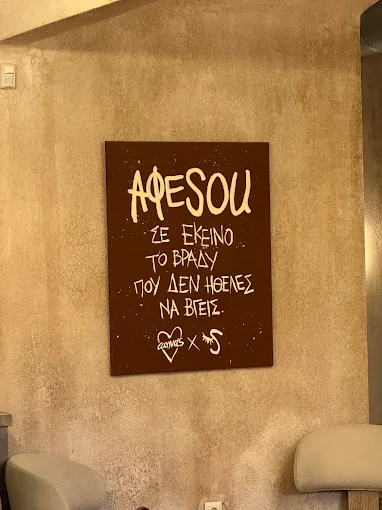 ΑΦΕSOU
ΣΕ ΕΚΕΙΝΟ
ΤΟ ΒΡΑΔΥ
ΠΟΥ ΔΕΝ ΗΘΕΛΕΣ
ΝΑ ΒΓΕΙΣ.
canvas x S